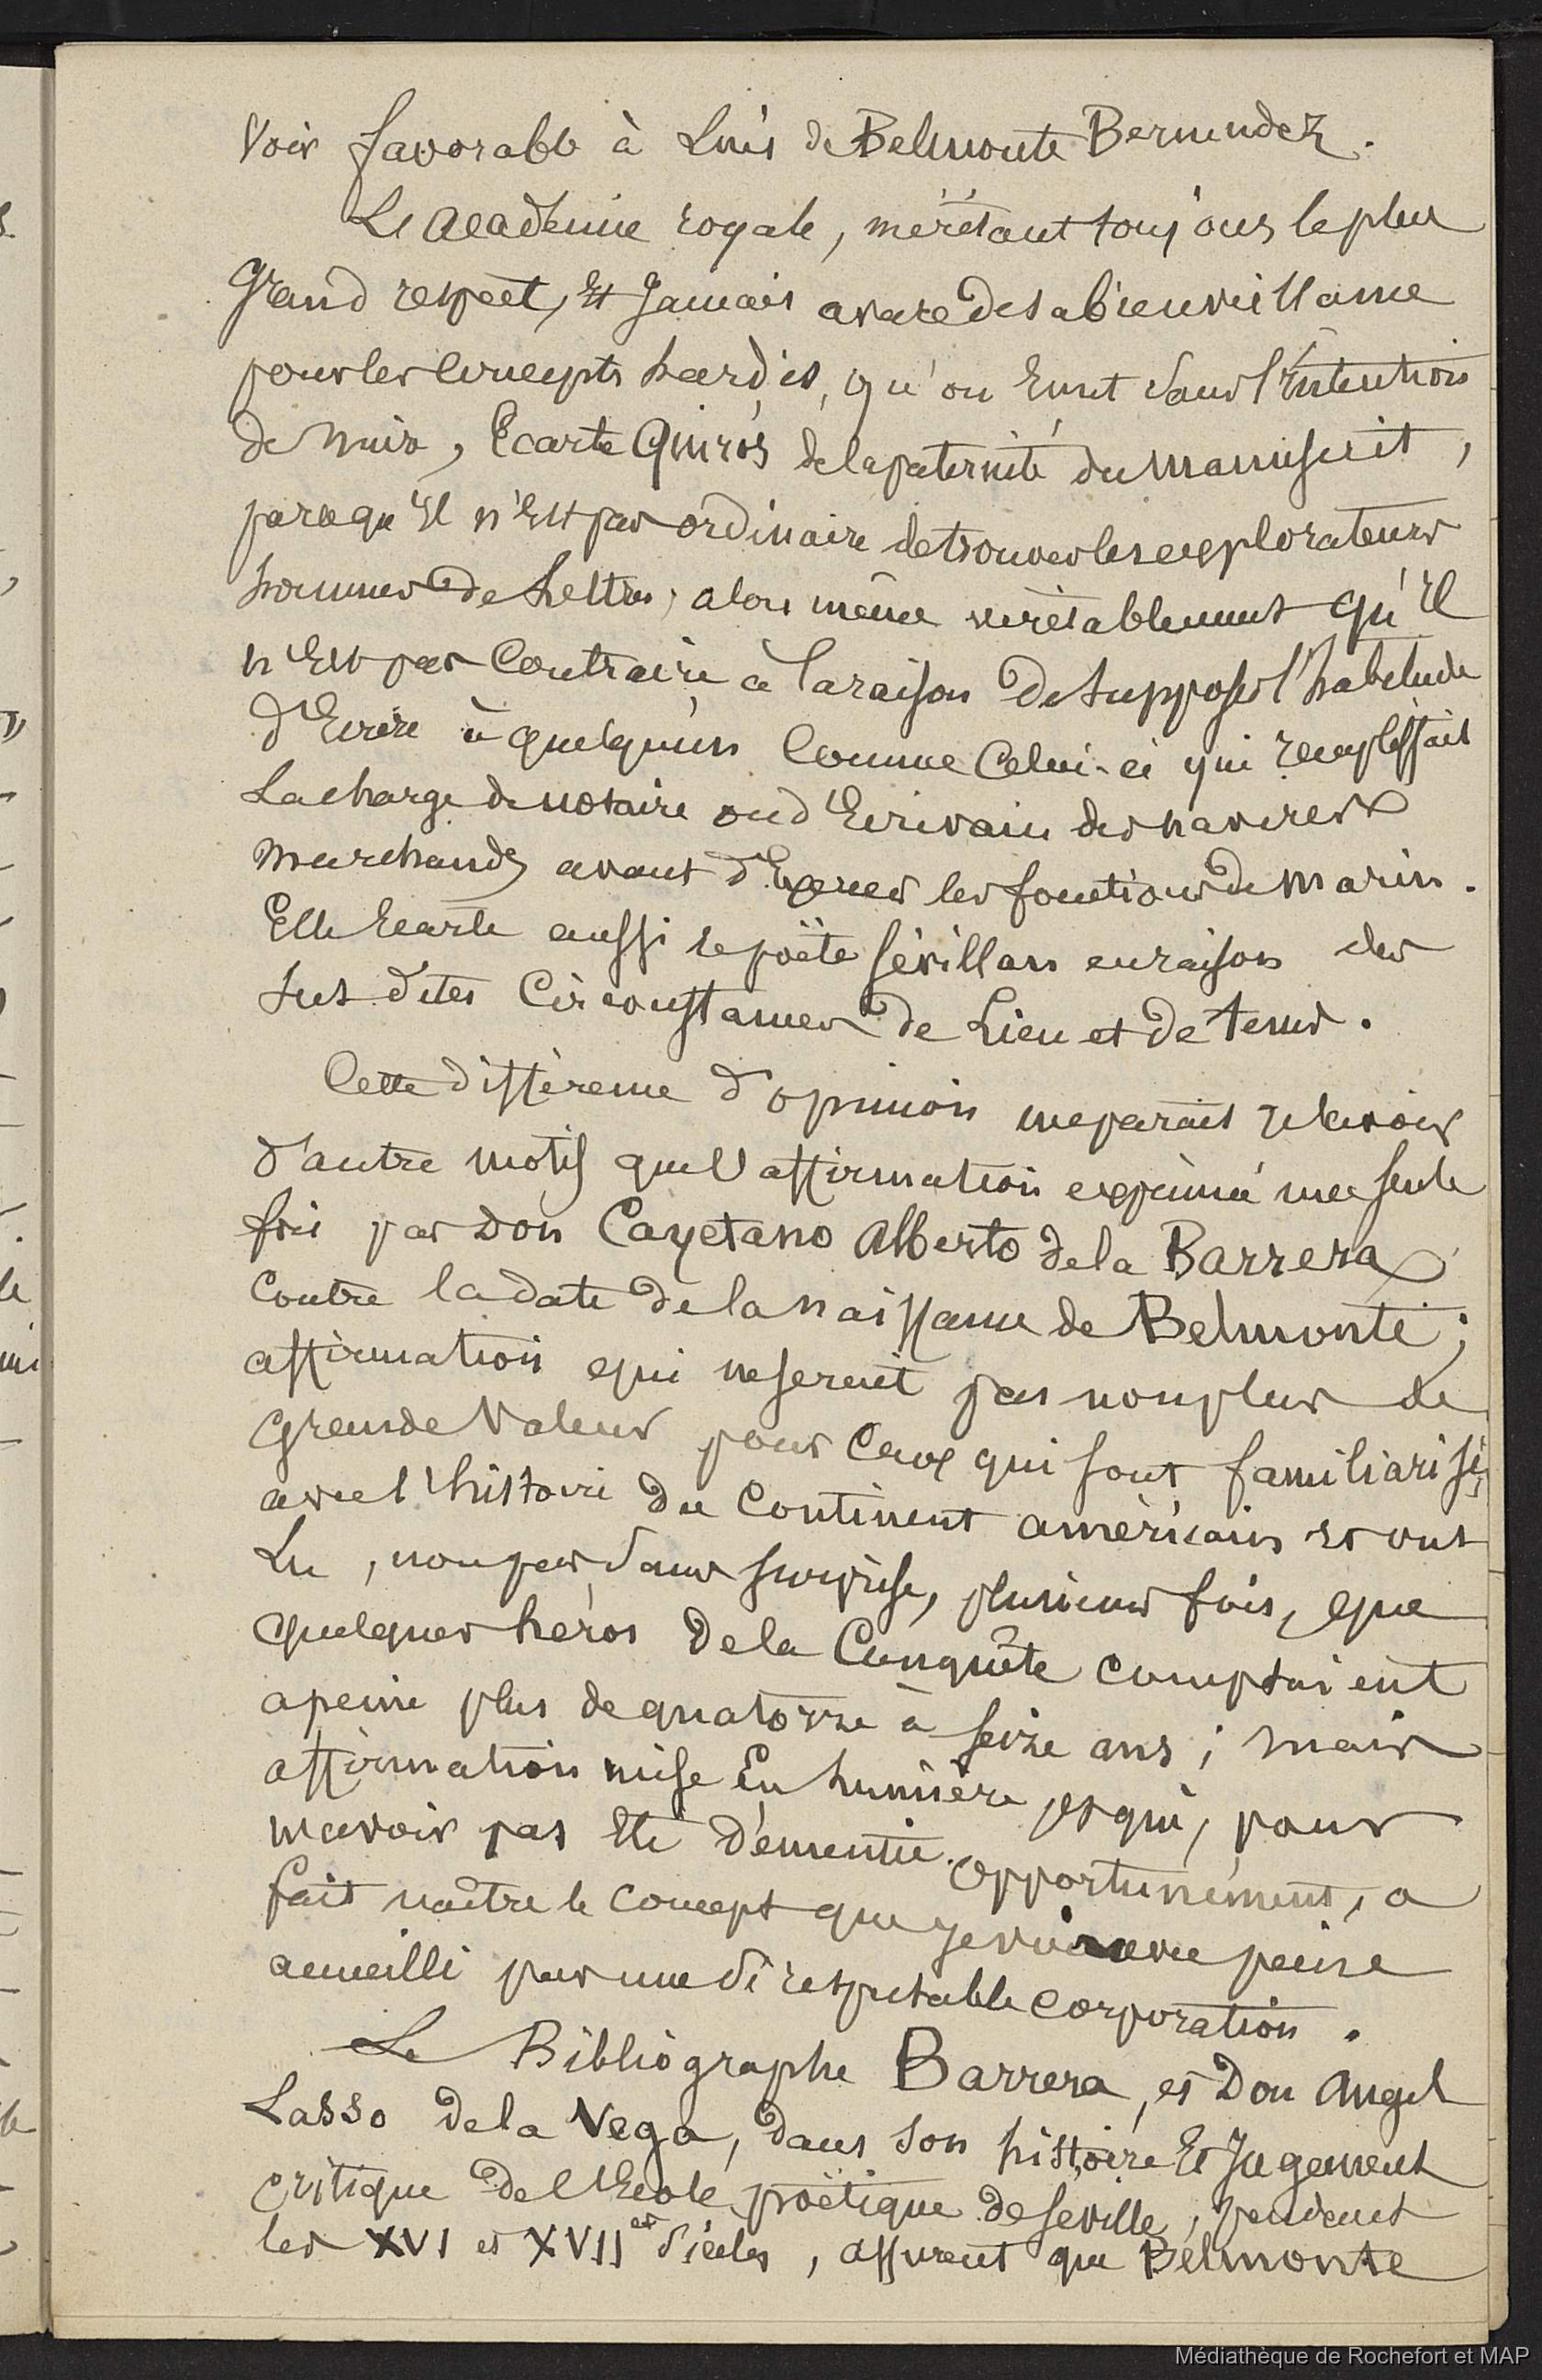 voir favorable à Luis de Belmonte Bermudez.
Le academie royale, méritant toujours le plus
grand respect, Et Jamais avare de sa bienveillance
pour les concepts hardis, qu'on Emet dans l'Intention
de nuir, Ecarte Quiros de la paternité du manuscrit,
parcequ'Il n'Est pas ordinaire de trouver les explorateurs
hommes de Lettres, alors même veritablement qu'Il
n'Est pas Contraire à la raison de supposer l'habitude
d'Ecrire à quelqu'un Comme Celui-ci qui remplissait
La charge de notaire ou d'Ecrivain des navires
marchands avant d'Exercer les fonctions de marin.
Elle Ecarte aussi le poëte sévillan en raison des
sus dites Circonstances de Lieu et de tems.
Cette différence d'opinion me parait
d'autre motif que l'affirmation exprimé une seule
fois par Don Cayetano Alberto de la Barrera
Contre la date de la naissance de Belmonte;
affirmation qui ne serait pas non plus de
grande Valeur pour Ceux qui sont familiarisés
avec l'histoire du Continent américain et ont
Lu, non pas sans surprise, plusieurs fois, que
quelques héros de la Conquête comptaient
a peine plus de quatorze à seize ans; mais
affirmation mise En Lumière, et qui, pour
n'avoir pas Eté démentie opportunément, a
fait naître le concept que je vois avec peine
accueilli par une si respectable corporation.
Le Bibliographe Barrera, et Don Angel
Lasso de la Vega, dans son histoire Et Jugement
critique de l'Ecole poëtique de Seville, pendant
les XVI et XVII es siécles, assurent que Belmonte
Médiathèque de Rochefort et MAP